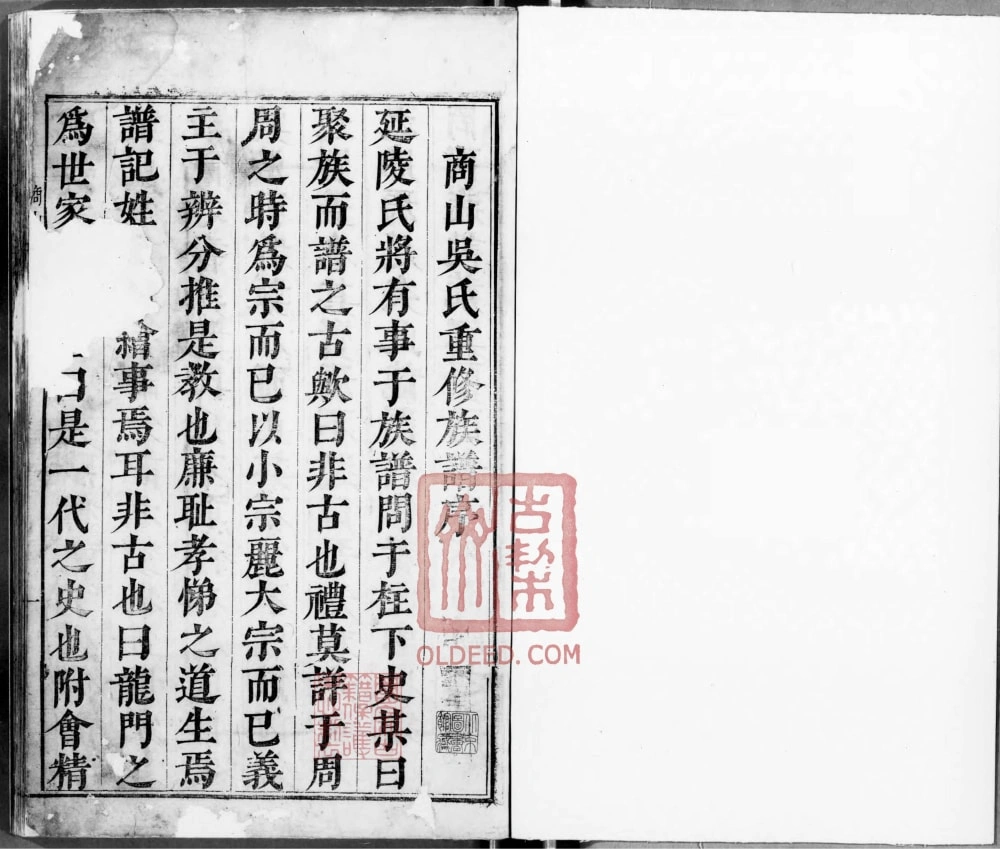 商山吳氏重修族譜序
延陵氏將有事于族譜問于柱下史某曰
聚族而譜之古歟曰非古也禮莫詳于周
周之時爲宗而已以小宗麗大宗而已義
主于辨分推是教也廉耻孝悌之道生焉
譜記姓事焉耳非古也曰龍門之
爲世家是一代之史也附會精
商
古槧
OLDEED.COM